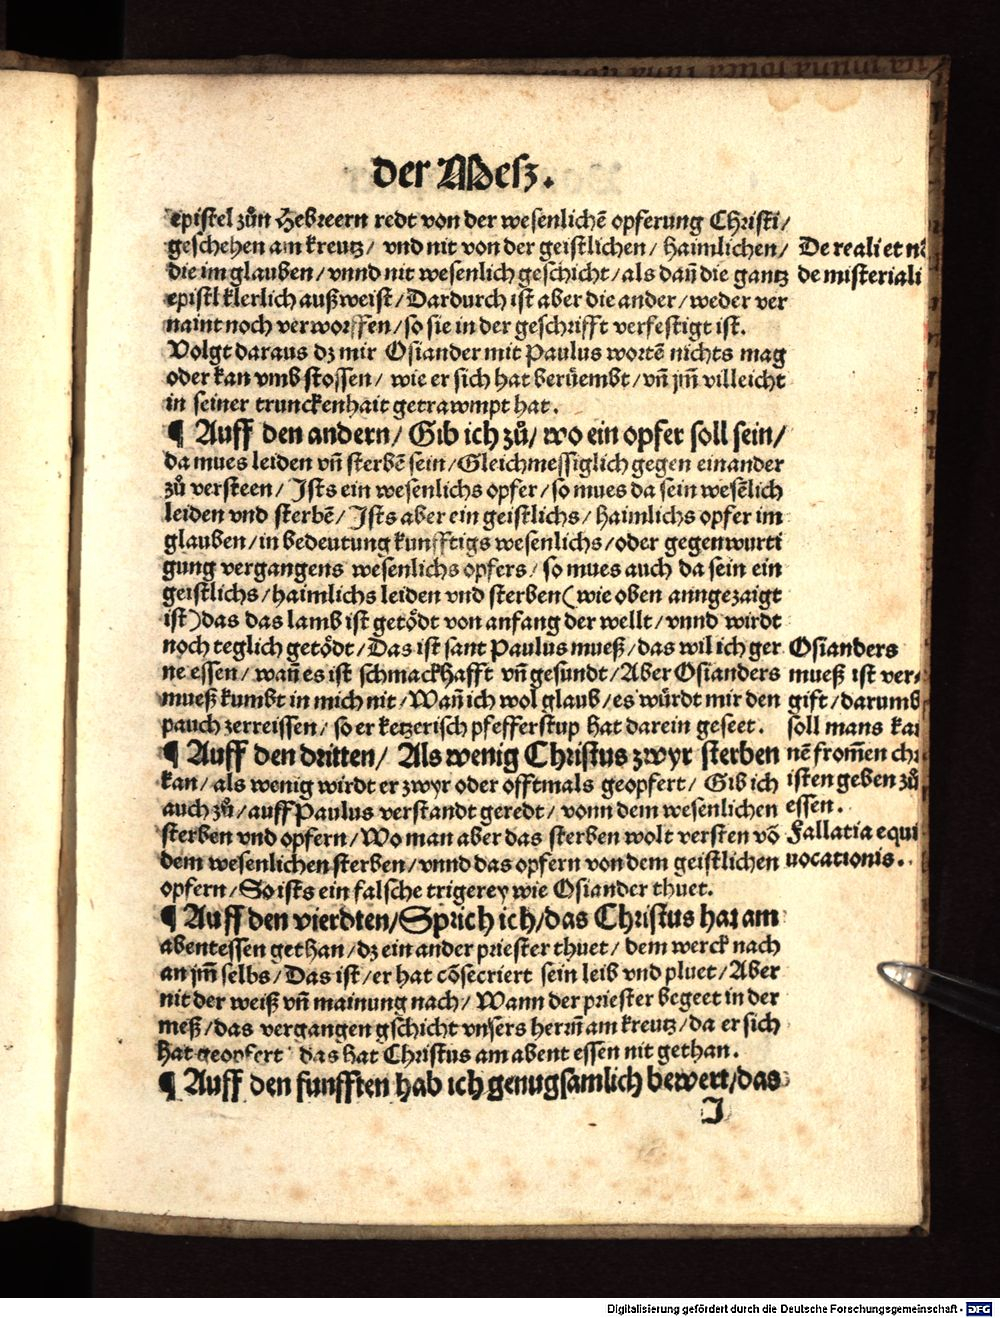 der Mesz.
epistel zůn Hebreern redt von der wesenlichē opferung Christi/
geschehen am kreutz/ vnd nit von der geistlichen/ haimlichen/
die im glauben/ vnnd nit wesenlich geschicht/ als dañ die gantz
epistl klerlich außweist/ Dardurch ist aber die ander/ weder ver
naint noch verworffen/ so sie in der geschrifft verfestigt ist.
Volgt daraus dz mir Osiander mit Paulus wortē nichts mag
oder kan vmb stossen/ wie er sich hat berüembt/ vñ jm̃ villeicht
in seiner trunckenhait getrawmpt hat.
¶ Auff den andern/ Gib ich zů/ wo ein opfer soll sein/
da mues leiden vñ sterbē sein/ Gleichmessiglich gegen einander
zů versteen/ Ists ein wesenlichs opfer/ so mues da sein wesēlich
leiden vnd sterbē/ Ists aber ein geistlichs/ haimlichs opfer im
glauben/ in bedeutung kunfftigs wesenlichs/ oder gegenwurti
gung vergangens wesenlichs opfers/ so mues auch da sein ein
geistlichs/ haimlichs leiden vnd sterben (wie oben anngezaigt
ist) das das lamb ist getödt von anfang der wellt/ vnnd wirdt
noch teglich getödt/ Das ist sant Paulus mueß/ das wil ich ger
ne essen/ wañ es ist schmackhafft vñ gesundt/ Aber Osianders
mueß kumbt in mich nit/ Wañ ich wol glaub/ es würdt mir den
pauch zerreissen/ so er ketzerisch pfefferstup hat darein geseet.
¶ Auff den dritten/ Als wenig Christus zwyr sterben
kan/ als wenig wirdt er zwyr oder offtmals geopfert/ Gib ich
auch zů/ auff Paulus verstandt geredt/ vonn dem wesenlichen
sterben vnd opfern/ Wo man aber das sterben wolt versten vō
dem wesenlichen sterben/ vnnd das opfern von dem geistlichen
opfern/ So ists ein falsche trigerey wie Osiander thuet.
¶ Auff den vierdten/ Sprich ich/ das Christus hat am
abentessen gethan/ dz ein ander priester thuet/ dem werck nach
an jm̃ selbs/ Das ist/ er hat cōsecriert sein leib vnd pluet/ Aber
nit der weiß vñ mainung nach/ Wann der priester begeet in der
meß/ das vergangen gschicht vnsers herrn̄ am kreutz/ da er sich
hat geopfert das hat Christus am abent essen nit gethan.
¶ Auff den funfften hab ich genugsamlich bewert/ das
J
De reali et nō
de misteriali
Osianders
mueß ist ver-
gift/ darumb
soll mans kai
nē from̃en chri
isten geben zů
essen.
Fallatia equi
uocationis.
Digitalisierung gefördert durch die Deutsche Forschungsgemeinschaft - DFG